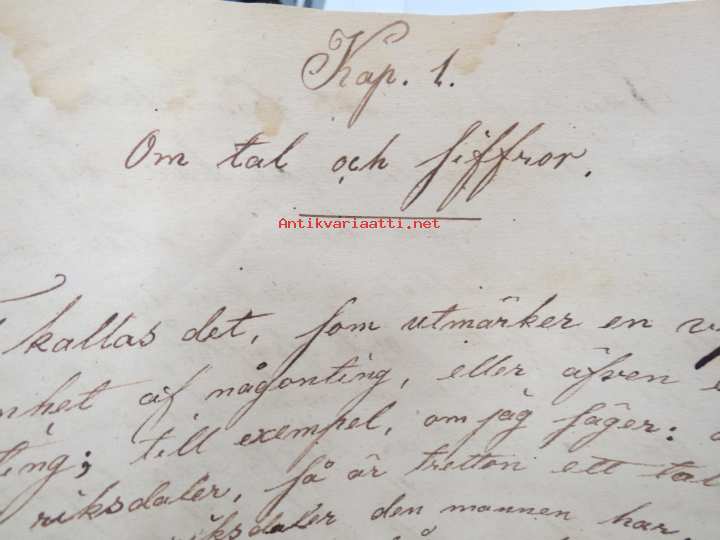 Kap. 1.
Om tal och siffror.
Antikvariaatti.net
kallas det, som utmärker en
af någonting, eller äfven
ting; till exempel, om jag säger:
riksdaler, så är tretton ett tal
riksdaler den mannen har